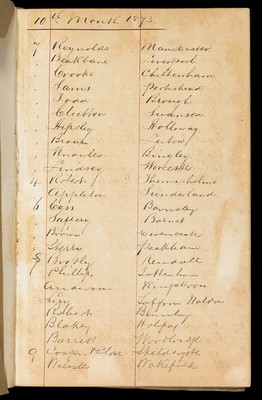 10th Month 1893.
7 Reynolds Manchester
" Beakbane Liverpool
" Crooke Cheltenham
" Sams Portishead
" Todd Brough
" Clutton Swansea
" Hipsley Holloway
" Brown Luton
" Knowles Bingley
" Lindsey Worcester
4 Roberts
" Appleton Sunderland
6 Cass Barnsley
" Satery Barnet
" Brown Cirencester
" Sterry Peckham
8 Kendall
" Phillips Tottenham
" Kings Cross
" Saffron Waldon
" Robert Burnley
" Blakey Halifax
" Barrett
9 Cooper & Close Skeldergate
" Webster Wakefield